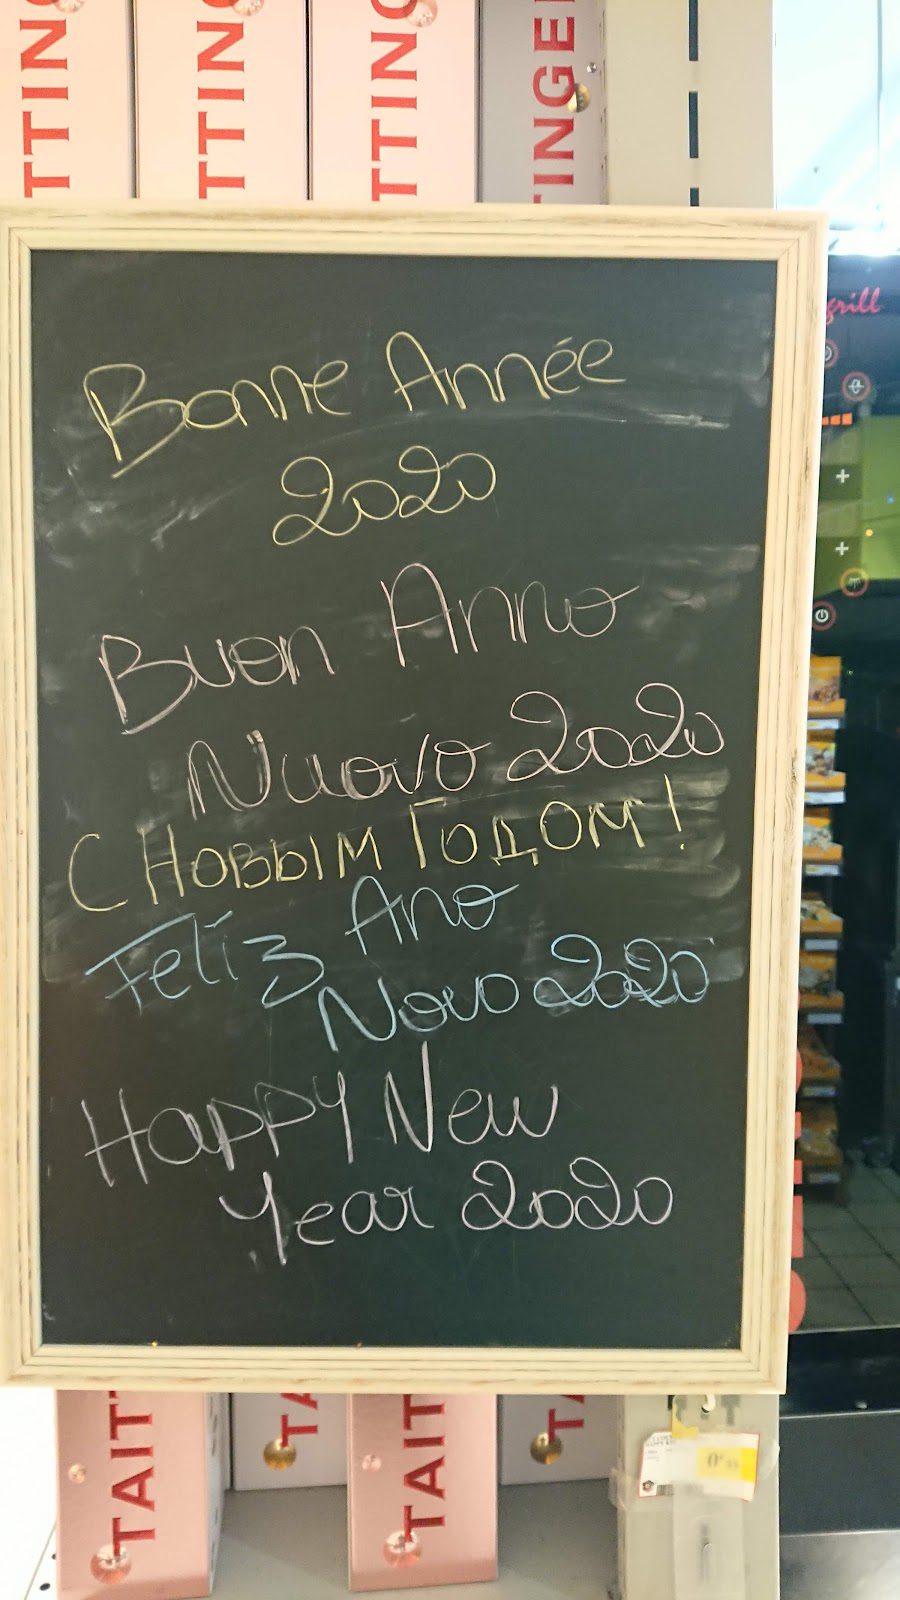 TTING
TTING
TTING
TINGE
grill
Bonne Année
2020
Buon Anno
Nuovo 2020
С Новым Годом!
Felíz Ano
Novo 2020
Happy New
Year 2020
TAITT
TA
TAITT
TA